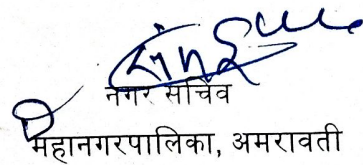 नगर सचिव
महानगरपालिका, अमरावती